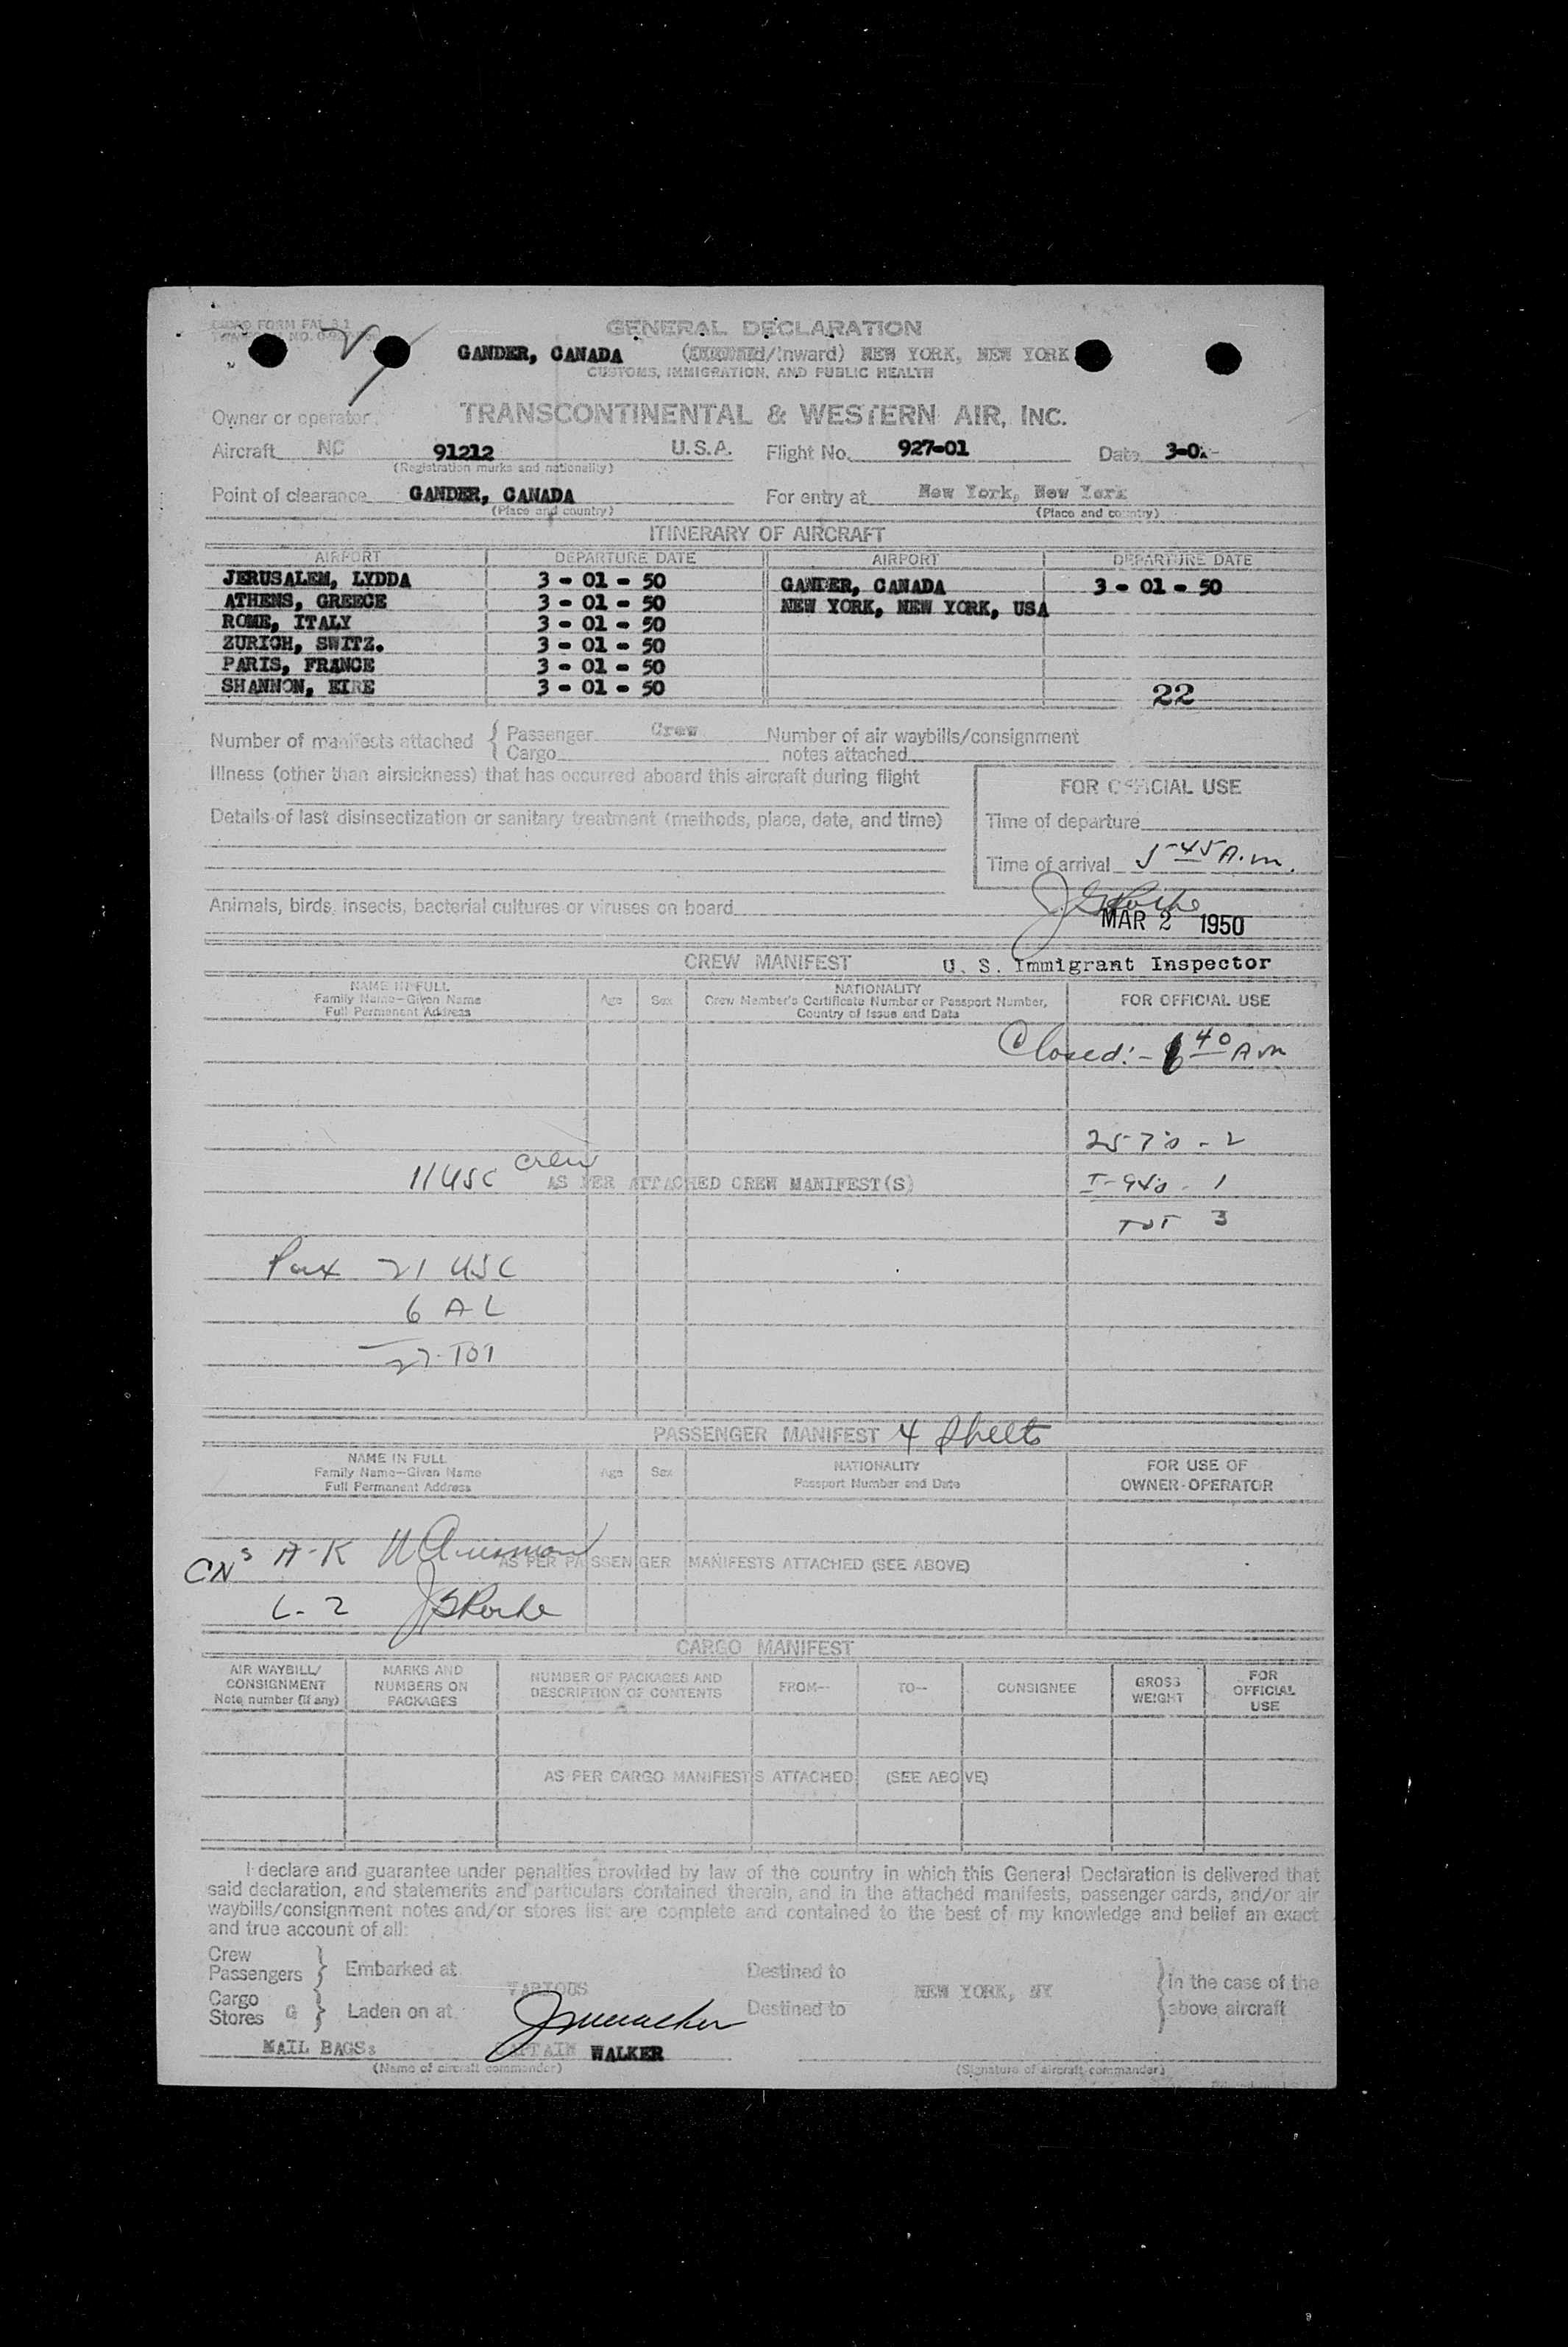 GENERAL DECLARATION
GANDER, CANADA (/Inward) NEW YORK, NEW YORK
CUSTOMS, IMMIGRATION, AND PUBLIC HEALTH
Owner or operator TRANSCONTINENTAL & WESTERN AIR, INC.
Aircraft NC 91212 U.S.A. Flight No. 927-01 Date 3-0
(Registration marks and nationality)
Point of clearance GANDER, CANADA For entry at New York, New York
(Place and country) (Place and country)
ITINERARY OF AIRCRAFT
AIRPORT DEPARTURE DATE AIRPORT DEPARTURE DATE
JERUSALEM, LYDDA 3 - 01 - 50 GANDER, CANADA 3 - 01 - 50
ATHENS, GREECE 3 - 01 - 50 NEW YORK, NEW YORK, USA
ROME, ITALY 3 - 01 - 50
ZURICH, SWITZ. 3 - 01 - 50
PARIS, FRANCE 3 - 01 - 50
SHANNON, EIRE 3 - 01 - 50 22
Number of manifests attached { Passenger Crew Number of air waybills/consignment
Cargo notes attached
Illness (other than airsickness) that has occurred aboard this aircraft during flight
FOR OFFICIAL USE
Details of last disinsectization or sanitary treatment (methods, place, date, and time)
Time of departure
Time of arrival 5-45 A.m.
Animals, birds, insects, bacterial cultures or viruses on board
MAR 2 1950
CREW MANIFEST U. S. Immigrant Inspector
NAME IN FULL
Family Name—Given Name
Full Permanent Address
Age Sex
NATIONALITY
Crew Member's Certificate Number or Passport Number,
Country of Issue and Date
FOR OFFICIAL USE
Closed:- 6 40 Am
257's - 2
11 USC crew AS PER ATTACHED CREW MANIFEST(S) I-94's - 1
TOT 3
Pax 21 USC
6 AL
27-TOT
PASSENGER MANIFEST 4 Sheets
NAME IN FULL
Family Name—Given Name
Full Permanent Address
Age Sex
NATIONALITY
Passport Number and Date
FOR USE OF
OWNER-OPERATOR
CN's A-K
AS PER PASSENGER MANIFESTS ATTACHED (SEE ABOVE)
L-Z JGRoche
CARGO MANIFEST
AIR WAYBILL/
CONSIGNMENT
Note number (if any)
MARKS AND
NUMBERS ON
PACKAGES
NUMBER OF PACKAGES AND
DESCRIPTION OF CONTENTS
FROM— TO— CONSIGNEE
GROSS
WEIGHT
FOR
OFFICIAL
USE
AS PER CARGO MANIFESTS ATTACHED (SEE ABOVE)
I declare and guarantee under penalties provided by law of the country in which this General Declaration is delivered that
said declaration, and statements and particulars contained therein, and in the attached manifests, passenger cards, and/or air
waybills/consignment notes and/or stores list are complete and contained to the best of my knowledge and belief an exact
and true account of all:
Crew
Passengers } Embarked at VARIOUS Destined to NEW YORK, NY } in the case of the
Cargo
Stores G } Laden on at Destined to } above aircraft
MAIL BAGS: CAPTAIN WALKER
(Name of aircraft commander) (Signature of aircraft commander)